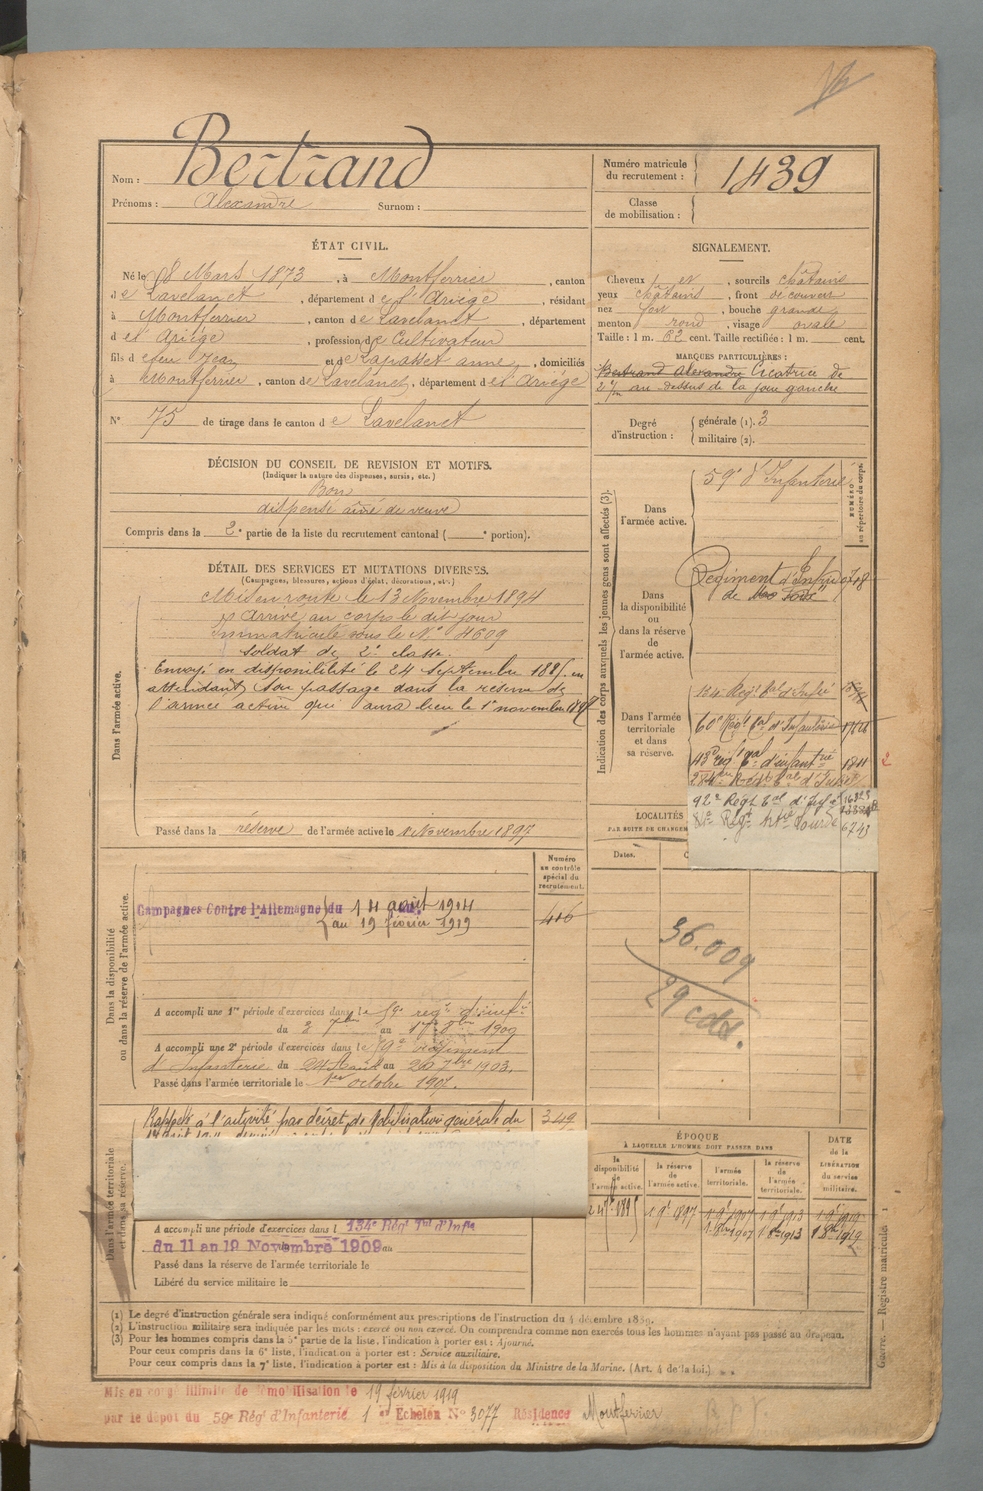 Bertrand
Nom :
Prénoms : Alexandre Surnom :
Numéro matricule du recrutement : 1439
Classe de mobilisation :
ÉTAT CIVIL.
Né le 8 Mars 1873, à Montferrier, canton
de Lavelanet, département de l'Ariège, résidant
à Montferrier, canton de Lavelanet, département
de l'Ariège, profession de Cultivateur
fils de feu Jean et de Lapasset anne, domiciliés
à Montferrier, canton de Lavelanet, département de l'Ariège
N° 75 de tirage dans le canton de Lavelanet
SIGNALEMENT.
Cheveux et sourcils châtains
yeux châtains, front découvert
nez, bouche grande
menton rond, visage ovale
Taille : 1 m. 62 cent. Taille rectifiée : 1 m. cent.
MARQUES PARTICULIÈRES :
Bertrand Alexandre Cicatrice de
2 c/m au dessus de la joue gauche
Degré d'instruction : générale (1). 3
militaire (2).
DÉCISION DU CONSEIL DE REVISION ET MOTIFS.
(Indiquer la nature des dispenses, sursis, etc.)
Bon
dispensé aîné de veuve
Compris dans la 2e partie de la liste du recrutement cantonal ( e portion).
DÉTAIL DES SERVICES ET MUTATIONS DIVERSES.
(Campagnes, blessures, actions d'éclat, décorations, etc.)
Dans l'armée active.
Mis en route le 13 Novembre 1894
Arrivé au corps le dit jour
Immatriculé sous le N° 4609
soldat de 2e classe.
Envoyé en disponibilité le 24 Septembre 1895 en
attendant son passage dans la réserve de
l'armée active qui aura lieu le 1er novembre 1897
Passé dans la réserve de l'armée active le 1 Novembre 1897
Indication des corps auxquels les jeunes gens sont affectés (3).
NUMÉRO au répertoire du corps.
Dans l'armée active.
59e d'Infanterie
Dans la disponibilité ou dans la réserve de l'armée active.
Régiment d'Inf
de
Dans l'armée territoriale et dans sa réserve.
134e Régt tal d'Infie
60e Régt tal d'Infanterie
48e reg tal d'infantrie 1811
92e Régt tal d'Inf
Lourde 6743
2
LOCALITÉS
PAR SUITE DE CHANGEM
Dates.
36.009
29 cdt.
Numéro au contrôle spécial du recrutement.
Dans la disponibilité ou dans la réserve de l'armée active.
Campagnes Contre l'Allemagne du 14 août 1914
au 19 février 1919
416
A accompli une 1re période d'exercices dans le 59e regt d'infie
du 2 7bre au 1900
A accompli une 2e période d'exercices dans le 59e régiment
d'Infanterie du 24 Août au 20 7bre 1903.
Passé dans l'armée territoriale le 1er octobre 1907.
Dans l'armée territoriale et dans sa réserve.
Rappelé à l'activité par décret de Mobilisation générale du
349
A accompli une période d'exercices dans l 134e Régt Tal d'Infie
du 11 au 19 Novembre 1909 au
Passé dans la réserve de l'armée territoriale le
Libéré du service militaire le
ÉPOQUE
À LAQUELLE L'HOMME DOIT PASSER DANS
la disponibilité de l'armée active.
la réserve de l'armée active.
l'armée territoriale.
la réserve de l'armée territoriale.
DATE de la LIBÉRATION du service militaire.
1 9e 1897 1 9e 1907 1 9e 1913 1 9e 1919
1 8bre 1907 1 8bre 1913 1 8bre 1919
Guerre. — Registre matricule. 1
(1) Le degré d'instruction générale sera indiqué conformément aux prescriptions de l'instruction du 4 décembre 1889.
(2) L'instruction militaire sera indiquée par les mots : exercé ou non exercé. On comprendra comme non exercés tous les hommes n'ayant pas passé au drapeau.
(3) Pour les hommes compris dans la 5e partie de la liste, l'indication à porter est : Ajourné.
Pour ceux compris dans la 6e liste, l'indication à porter est : Service auxiliaire.
Pour ceux compris dans la 7e liste, l'indication à porter est : Mis à la disposition du Ministre de la Marine. (Art. 4 de la loi.)
Mis en congé illimité de démobilisation le 19 février 1919
par le dépôt du 59e Régt d'Infanterie 1 er Echelon N° 3077 Résidence Montferrier